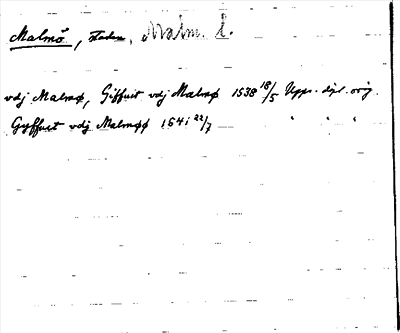 Malmö, staden, Malm. l.
vdj Malmø, Giffuit vdj Malmø 1538 18/5 Upps. dipl. orig.
Gyffuet vdj Malmøø 1541 22/7 " " "